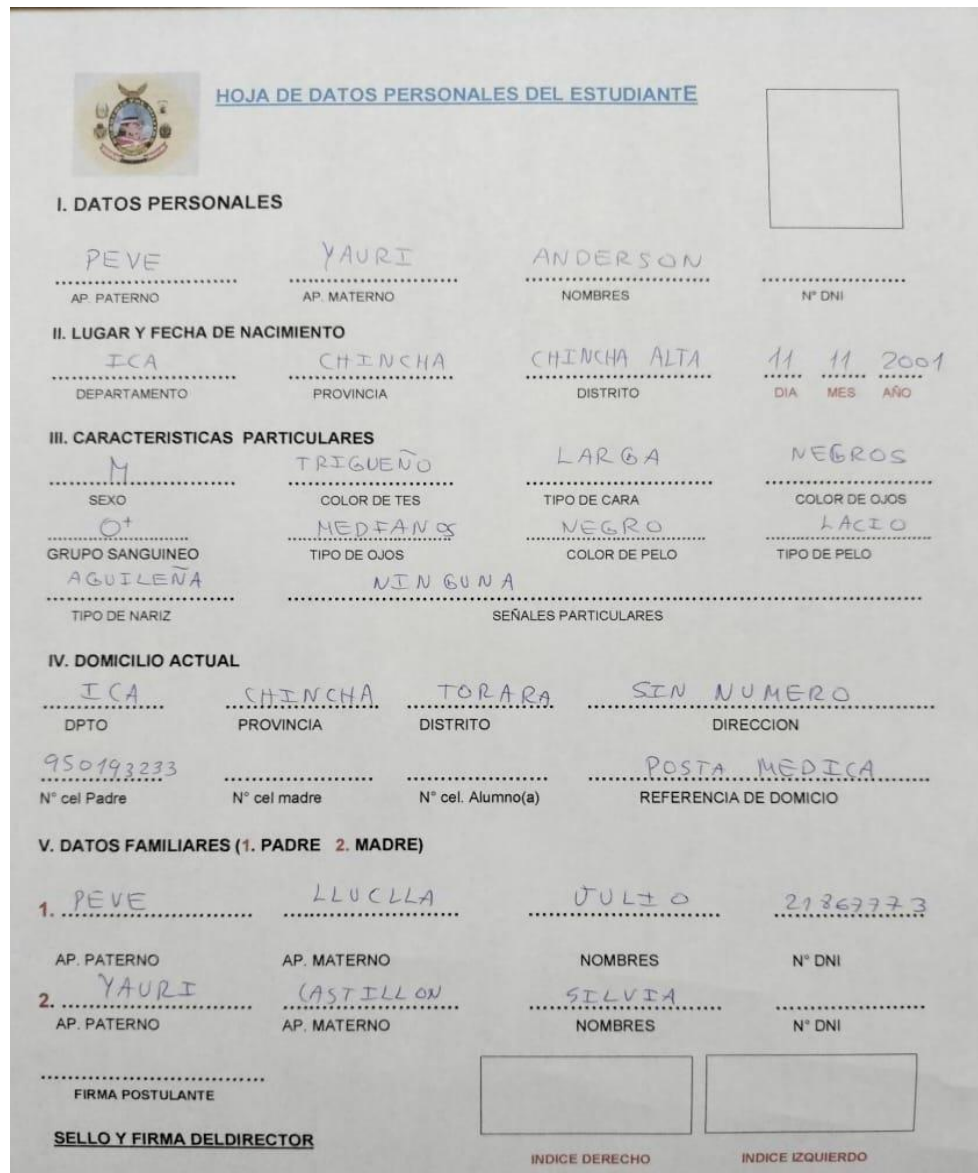 HOJA DE DATOS PERSONALES DEL ESTUDIANTE
I. DATOS PERSONALES
PEVE YAURI ANDERSON
AP. PATERNO AP. MATERNO NOMBRES N° DNI
II. LUGAR Y FECHA DE NACIMIENTO
ICA CHINCHA CHINCHA ALTA 11 11 2001
DEPARTAMENTO PROVINCIA DISTRITO DIA MES AÑO
III. CARACTERISTICAS PARTICULARES
M TRIGUEÑO LARGA NEGROS
SEXO COLOR DE TES TIPO DE CARA COLOR DE OJOS
O+ MEDIANOS NEGRO LACIO
GRUPO SANGUINEO TIPO DE OJOS COLOR DE PELO TIPO DE PELO
AGUILEÑA NINGUNA
TIPO DE NARIZ SEÑALES PARTICULARES
IV. DOMICILIO ACTUAL
ICA CHINCHA TORARA SIN NUMERO
DPTO PROVINCIA DISTRITO DIRECCION
950193233 POSTA MEDICA
N° cel Padre N° cel madre N° cel. Alumno(a) REFERENCIA DE DOMICIO
V. DATOS FAMILIARES (1. PADRE 2. MADRE)
1. PEVE LLUCLLA JULIO 21867773
AP. PATERNO AP. MATERNO NOMBRES N° DNI
2. YAURI CASTILLON SILVIA
AP. PATERNO AP. MATERNO NOMBRES N° DNI
FIRMA POSTULANTE
SELLO Y FIRMA DELDIRECTOR
INDICE DERECHO INDICE IZQUIERDO